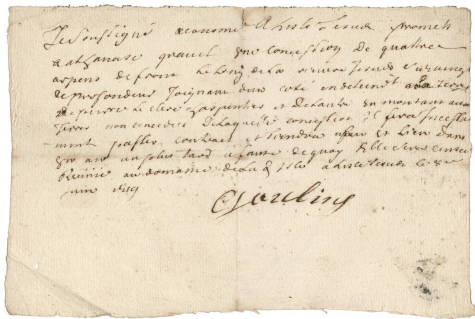 Je Soussigné œconome A Lisle Jesus promets
a athanase gravel une concession de quatre
arpens de front Le long de La riviere Jesus
de profondeur joignant dun coté
de pierre Le clerc charpentier et de lautre en montant aux
terres non concedées de Laquelle concession il fera incessam
ment passer contract et tiendra feu et Lieu dans
un an au plus tard a faute de quoy Elle Sera censée
Réunie au domaine a Lisle Jesus Le